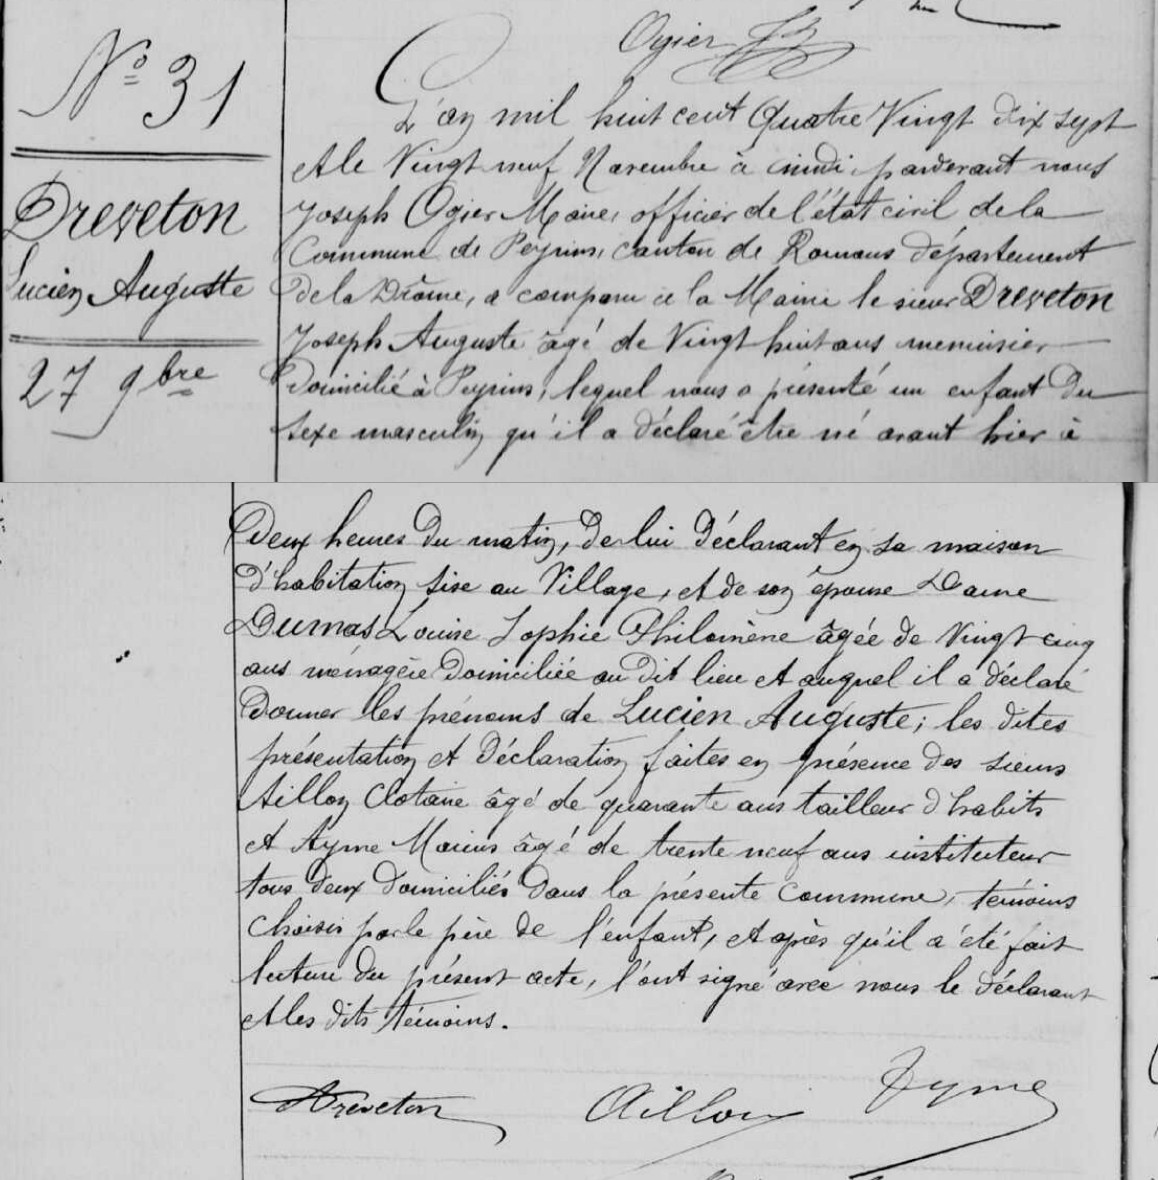 Ogier
Nº 31
Dreveton
Lucien Auguste
27 9bre
L'an mil huit cent Quatre Vingt dix sept
et le Vingt neuf Novembre à midi, pardevant nous
Joseph Ogier Maire, officier de l'état civil de la
Commune de Peyrins, canton de Romans département
de la Drôme, a comparu à la Mairie le sieur Dreveton
Joseph Auguste âgé de Vingt huit ans menuisier
Domicilié à Peyrins, lequel nous a présenté un enfant du
sexe masculin qu'il a déclaré être né avant hier à
Deux heures du matin, de lui déclarant en sa maison
d'habitation sise au Village, et de son épouse Dame
Dumas Louise Sophie Philomène âgée de Vingt cinq
ans ménagère Domiciliée au dit lieu et auquel il a déclaré
Donner les prénoms de Lucien Auguste; les dites
présentation et déclaration faites en présence des sieurs
Aillon Clotaire âgé de quarante ans tailleur d'habits
et Ayme Marius âgé de trente neuf ans instituteur
tous deux domiciliés dans la présente commune, témoins
choisis par le père de l'enfant, et après qu'il a été fait
lecture du présent acte, l'ont signé avec nous le déclarant
et les dits témoins.
Dreveton Aillon Ayme